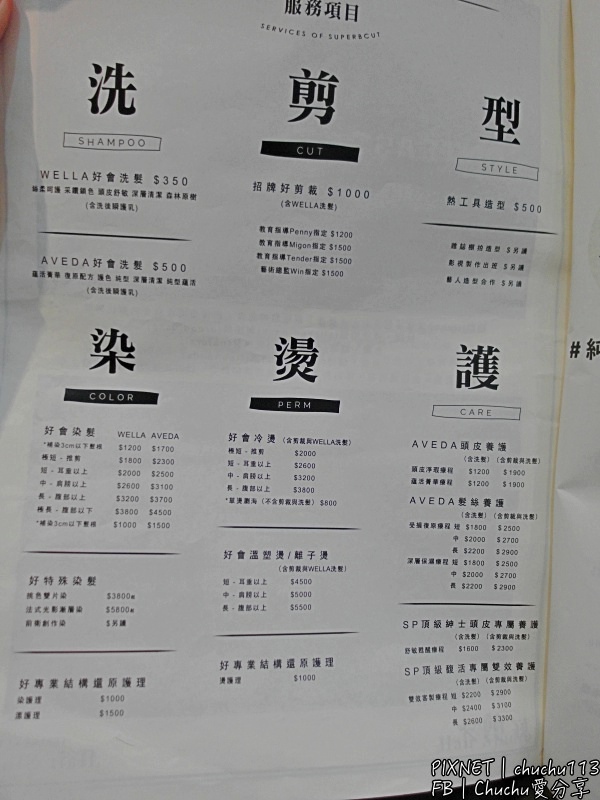 服務項目
SERVICES OF SUPERBCUT
洗
SHAMPOO
WELLA好會洗髮 $350
絲柔呵護 采鑽鎖色 頭皮舒敏 深層清潔 森林原樹
(含洗後瞬護乳)
AVEDA好會洗髮 $500
蘊活菁華 復原配方 護色 純型 深層清潔 純型蘊活
(含洗後瞬護乳)
剪
CUT
招牌好剪裁 $1000
(含WELLA洗髮)
教育指導Penny指定 $1200
教育指導Migon指定 $1500
教育指導Tender指定 $1500
藝術總監Win指定 $1500
型
STYLE
熱工具造型 $500
雜誌棚拍造型 $另議
影視製作出班 $另議
藝人造型合作 $另議
染
COLOR
好會染髮 WELLA AVEDA
*補染3cm以下髮根 $1200 $1700
極短 - 推剪 $1800 $2300
短 - 耳重以上 $2000 $2500
中 - 肩膀以上 $2600 $3100
長 - 腹部以上 $3200 $3700
極長 - 腹部以下 $3800 $4500
*補染3cm以下髮根 $1000 $1500
好特殊染髮
挑色雙片染 $3800起
法式光影漸層染 $5800起
前衛創作染 $另議
好專業結構還原護理
染護理 $1000
漂護理 $1500
燙
PERM
好會冷燙 (含剪裁與WELLA洗髮)
極短 - 推剪 $2000
短 - 耳重以上 $2600
中 - 肩膀以上 $3200
長 - 腹部以上 $3800
*單燙瀏海 (不含剪裁與洗髮) $800
好會溫塑燙/離子燙
(含剪裁與WELLA洗髮)
短 - 耳重以上 $4500
中 - 肩膀以上 $5000
長 - 腹部以上 $5500
好專業結構還原護理
燙護理 $1000
護
CARE
AVEDA頭皮養護
(含洗髮) (含剪裁與洗髮)
頭皮淨瑕療程 $1200 $1900
蘊活菁華療程 $1200 $1900
AVEDA髮絲養護
(含洗髮) (含剪裁與洗髮)
受損復原療程 短 $1800 $2500
中 $2000 $2700
長 $2200 $2900
深層保濕療程 短 $1800 $2500
中 $2000 $2700
長 $2200 $2900
SP頂級紳士頭皮專屬養護
(含洗髮) (含剪裁與洗髮)
舒敏甦醒療程 $1600 $2300
SP頂級馥活專屬雙效養護
(含洗髮) (含剪裁與洗髮)
雙效客製療程 短 $2200 $2900
中 $2400 $3100
長 $2600 $3300
#純
PIXNET | chuchu113
FB | Chuchu愛分享